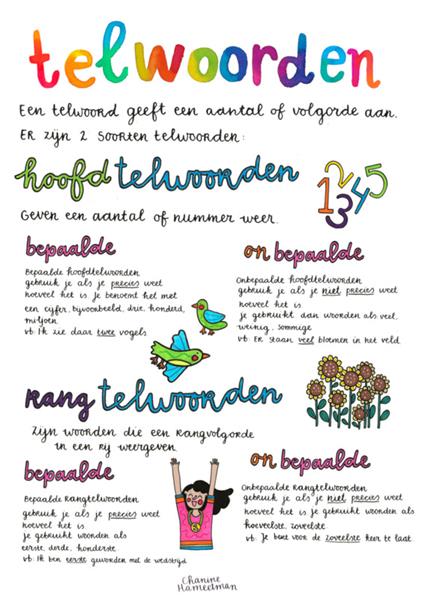 telwoorden
Een telwoord geeft een aantal of volgorde aan.
Er zijn 2 soorten telwoorden:
hoofdtelwoorden
12345
Geven een aantal of nummer weer.
bepaalde
Bepaalde hoofdtelwoorden
gebruik je als je precies weet
hoeveel het is. Je benoemt het met
een cijfer, bijvoorbeeld, drie, honderd,
miljoen
vb. Ik zie daar twee vogels
onbepaalde
Onbepaalde hoofdtelwoorden
gebruik je als je niet precies weet
hoeveel het is.
je gebruikt dan woorden als veel,
weinig, sommige
vb. Er staan veel bloemen in het veld.
rangtelwoorden
Zijn woorden die een rangvolgorde
in een rij weergeven
bepaalde
Bepaalde rangtelwoorden
gebruik je als je precies weet
hoeveel het is.
je gebruikt woorden als
eerste, derde, honderste
vb. Ik ben eerste geworden met de wedstrijd
onbepaalde
Onbepaalde rangtelwoorden
gebruik je als je niet precies weet
hoeveel het is je gebruikt woorden als
hoeveelste, zoveelste
vb. Je bent voor de zoveelste keer te laat
Chanine
Hameetman